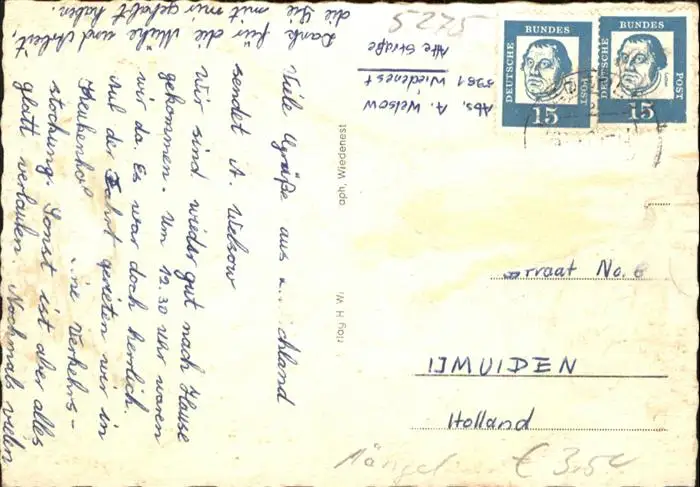 Viele Grüße aus
sendet A. Welsow
Wir sind wieder gut nach Hause
gekommen. Um 12.30 Uhr waren
wir da. Es war doch herrlich.
Auf der Fahrt gerieten wir in
ine Verkehrs-
stockung. Sonst ist aber alles
glatt verlaufen. Nochmals vielen
Dank für die Mühe und Arbeit,
die Sie mit mir gehabt haben.
oph, Wiedenest
rlag H. W
5275
Abs. A. Welsow
Wiedenest
Alte Straße
DEUTSCHE BUNDES POST
15
DEUTSCHE BUNDES POST
15
rraat No. 6
IJMUIDEN
Holland
Mängel € 3,50